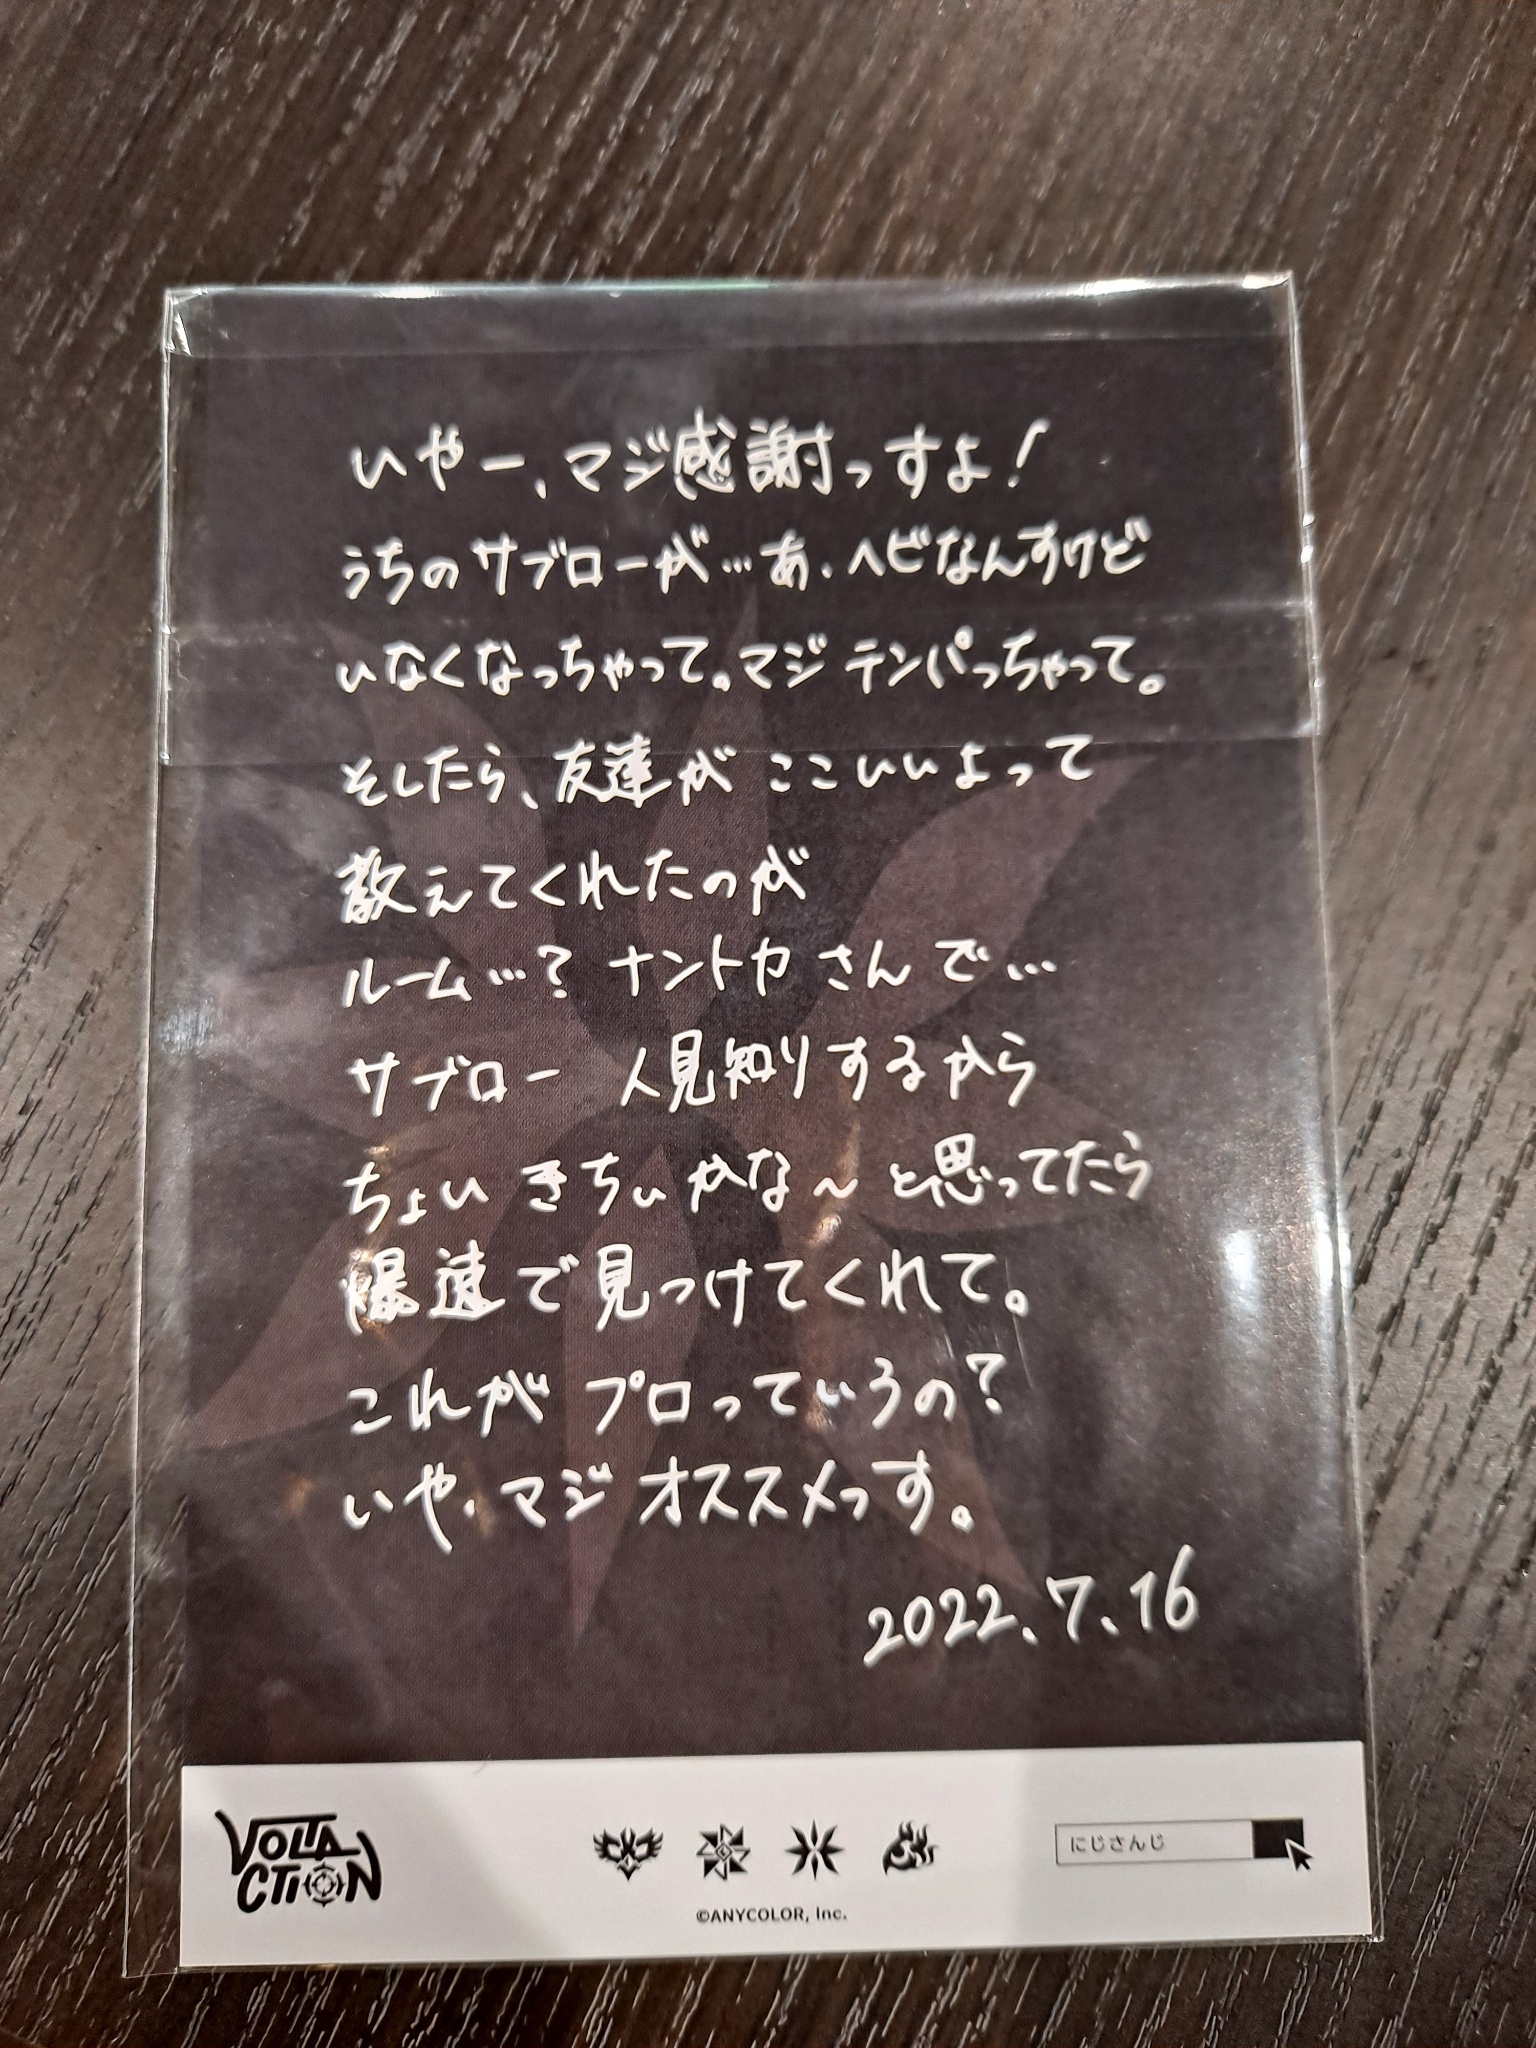 いやー、マジ感謝っすよ!
うちのサブローが…あ、ヘビなんすけど
いなくなっちゃって。マジテンパっちゃって。
そしたら、友達がここいいよって
教えてくれたのが
ルーム…?ナントカさんで…
サブロー 人見知りするから
ちょいきちぃかな〜と思ってたら
爆速で見つけてくれて。
これがプロっていうの?
いや、マジオススメっす。
2022.7.16
VOLTACTION
にじさんじ
©ANYCOLOR, Inc.